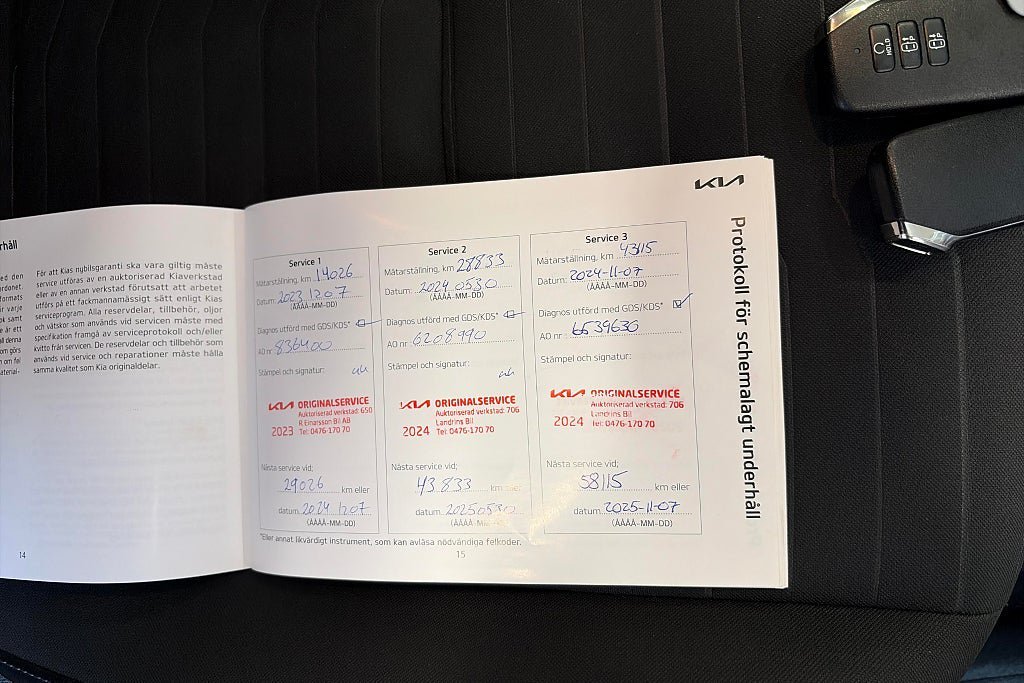 rhåll
För att Kias nybilsgaranti ska vara giltig måste
service utföras av en auktoriserad Kiaverkstad
eller av en annan verkstad förutsatt att arbetet
utförs på ett fackmannamässigt sätt enligt Kias
serviceprogram. Alla reservdelar, tillbehör, oljor
och vätskor som används vid servicen måste med
specifikation framgå av serviceprotokoll och/eller
kvitto från servicen. De reservdelar och tillbehör som
används vid service och reparationer måste hålla
samma kvalitet som Kia originaldelar.
14
KIA
Protokoll för schemalagt underhåll
Service 1
Mätarställning, km 14026
Datum: 2023 12 07
(ÅÅÅÅ-MM-DD)
Diagnos utförd med GDS/KDS*
AO nr: 836400
Stämpel och signatur:
KIA ORIGINALSERVICE
Auktoriserad verkstad: 650
R.Einarsson Bil AB
2023 Tel: 0476-170 70
Nästa service vid;
29026 km eller
datum: 2024 12 07
(ÅÅÅÅ-MM-DD)
Service 2
Mätarställning, km 28833
Datum: 2024 05 30
(ÅÅÅÅ-MM-DD)
Diagnos utförd med GDS/KDS*
AO nr: 6208990
Stämpel och signatur:
KIA ORIGINALSERVICE
Auktoriserad verkstad: 706
Landrins Bil
2024 Tel: 0476-170 70
Nästa service vid;
43833 km eller
datum: 2025 05 30
(ÅÅÅÅ-MM-DD)
Service 3
Mätarställning, km 43115
Datum: 2024-11-07
(ÅÅÅÅ-MM-DD)
Diagnos utförd med GDS/KDS*
AO nr: 6539630
Stämpel och signatur:
KIA ORIGINALSERVICE
Auktoriserad verkstad: 706
Landrins Bil
2024 Tel: 0476-170 70
Nästa service vid;
58115 km eller
datum: 2025-11-07
(ÅÅÅÅ-MM-DD)
*Eller annat likvärdigt instrument, som kan avläsa nödvändiga felkoder.
15
HOLD
P
P